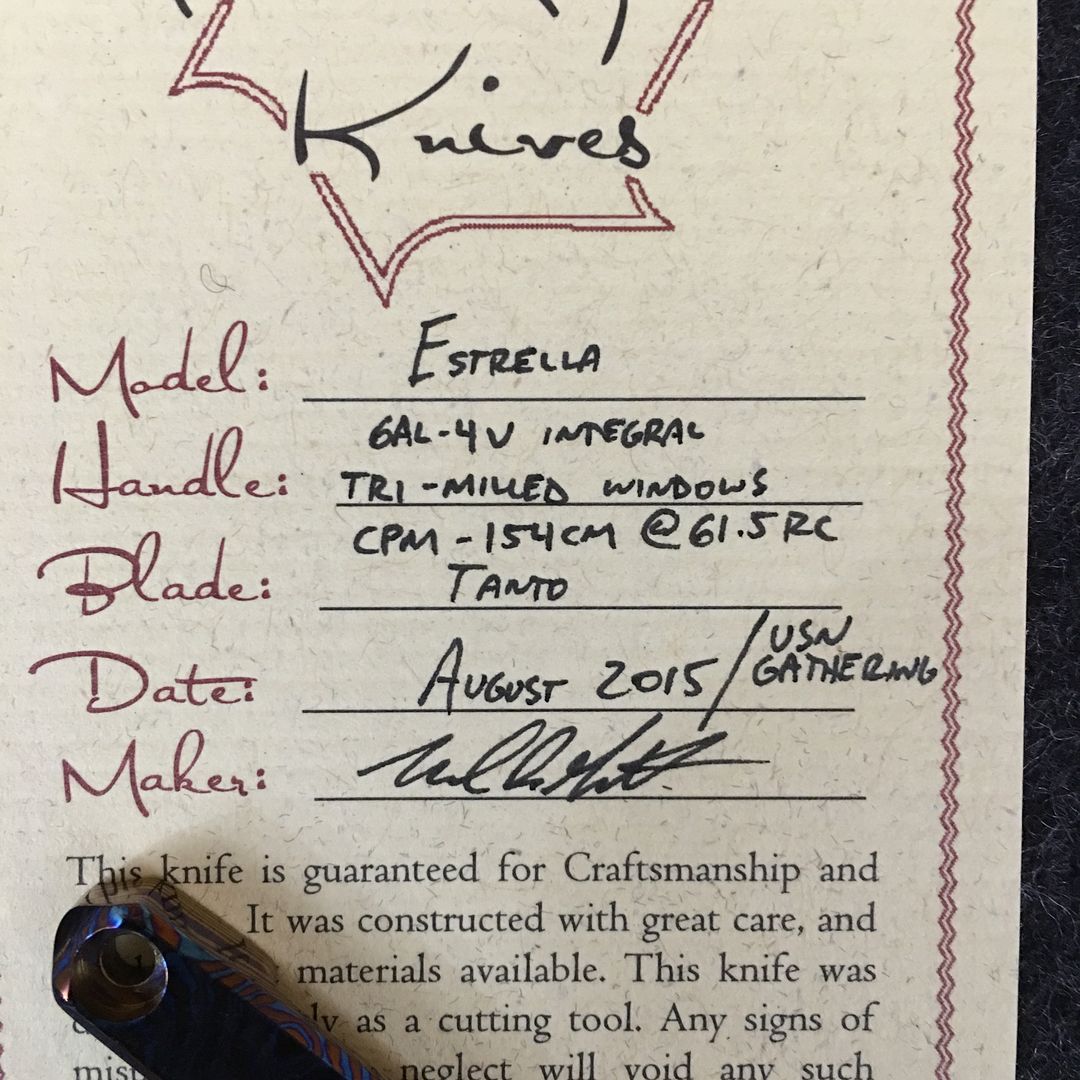 Knives
Model: ESTRELLA
6AL-4V INTEGRAL
Handle: TRI-MILLED WINDOWS
CPM-154CM @ 61.5 RC
Blade: TANTO
Date: AUGUST 2015 / USN GATHERING
Maker:
This knife is guaranteed for Craftsmanship and
It was constructed with great care, and
materials available. This knife was
as a cutting tool. Any signs of
neglect will void any such